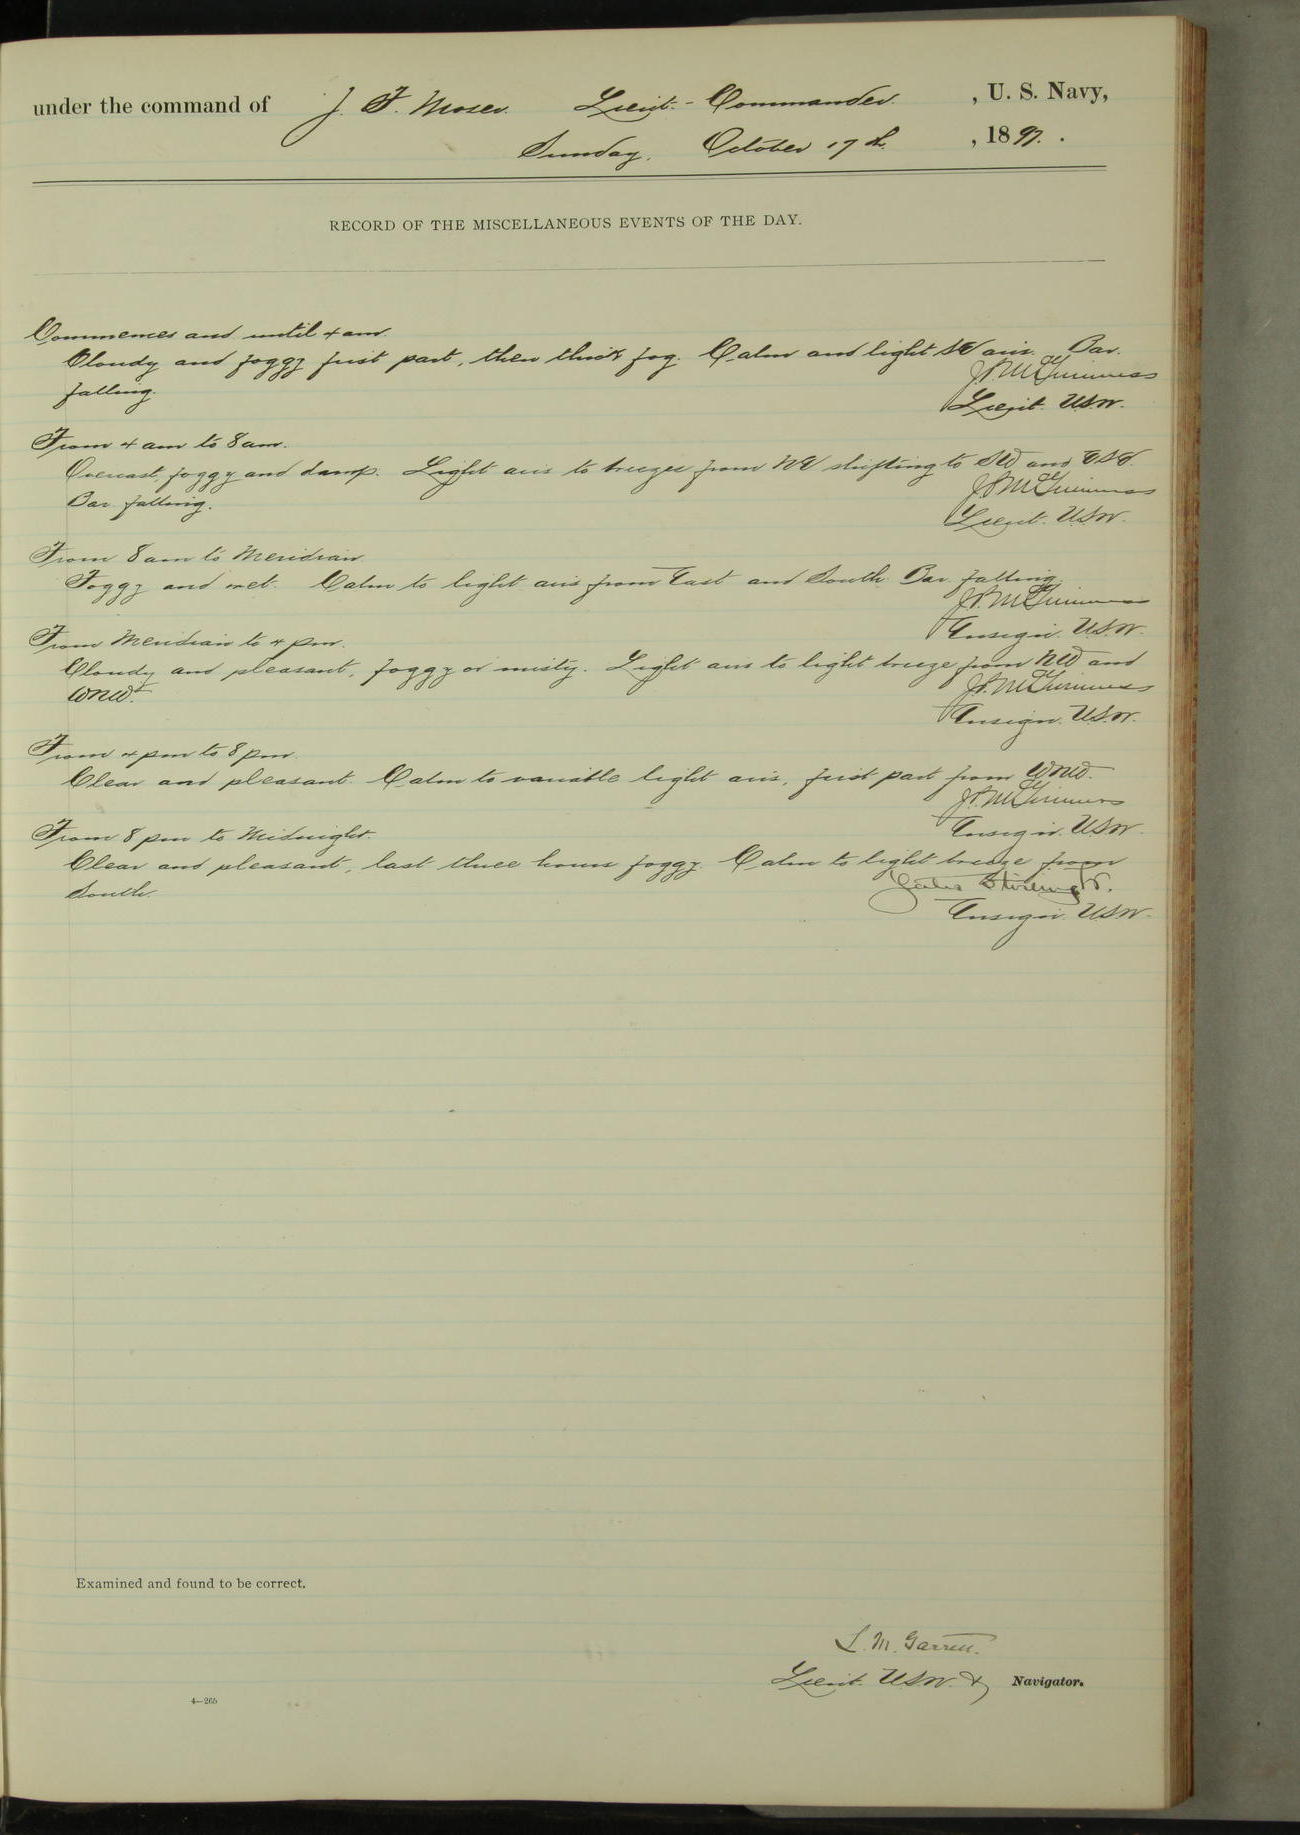 under the command of J. F. Moser. Lieut.-Commander. , U. S. Navy,
Sunday, October 17th. , 1897.
RECORD OF THE MISCELLANEOUS EVENTS OF THE DAY.
Commences and until 4 am.
Cloudy and foggy first part, then thick fog. Calm and light SE airs. Bar.
falling.
J.P. McGuinness
Lieut. USN.
From 4 am to 8 am.
Overcast, foggy and damp. Light airs to breezes from NE shifting to SW and ESE.
Bar falling.
J.P. McGuinness
Lieut. USN.
From 8 am to Meridian
Foggy and wet. Calm to light airs from East and South. Bar. falling.
J.P. McGuinness
Ensign. U.S.N.
From Meridian to 4 pm.
Cloudy and pleasant, foggy or misty. Light airs to light breeze from NW and
WNW.
J.P. McGuinness
Ensign. U.S.N.
From 4 pm to 8 pm.
Clear and pleasant. Calm to variable light airs, first part from WNW.
J.P. McGuinness
Ensign. USN.
From 8 pm to Midnight.
Clear and pleasant, last three hours foggy. Calm to light breeze from
South.
Yates Stirling Jr.
Ensign. USN.
Examined and found to be correct.
L. M. Garrett.
Lieut. USN. & Navigator.
4—265